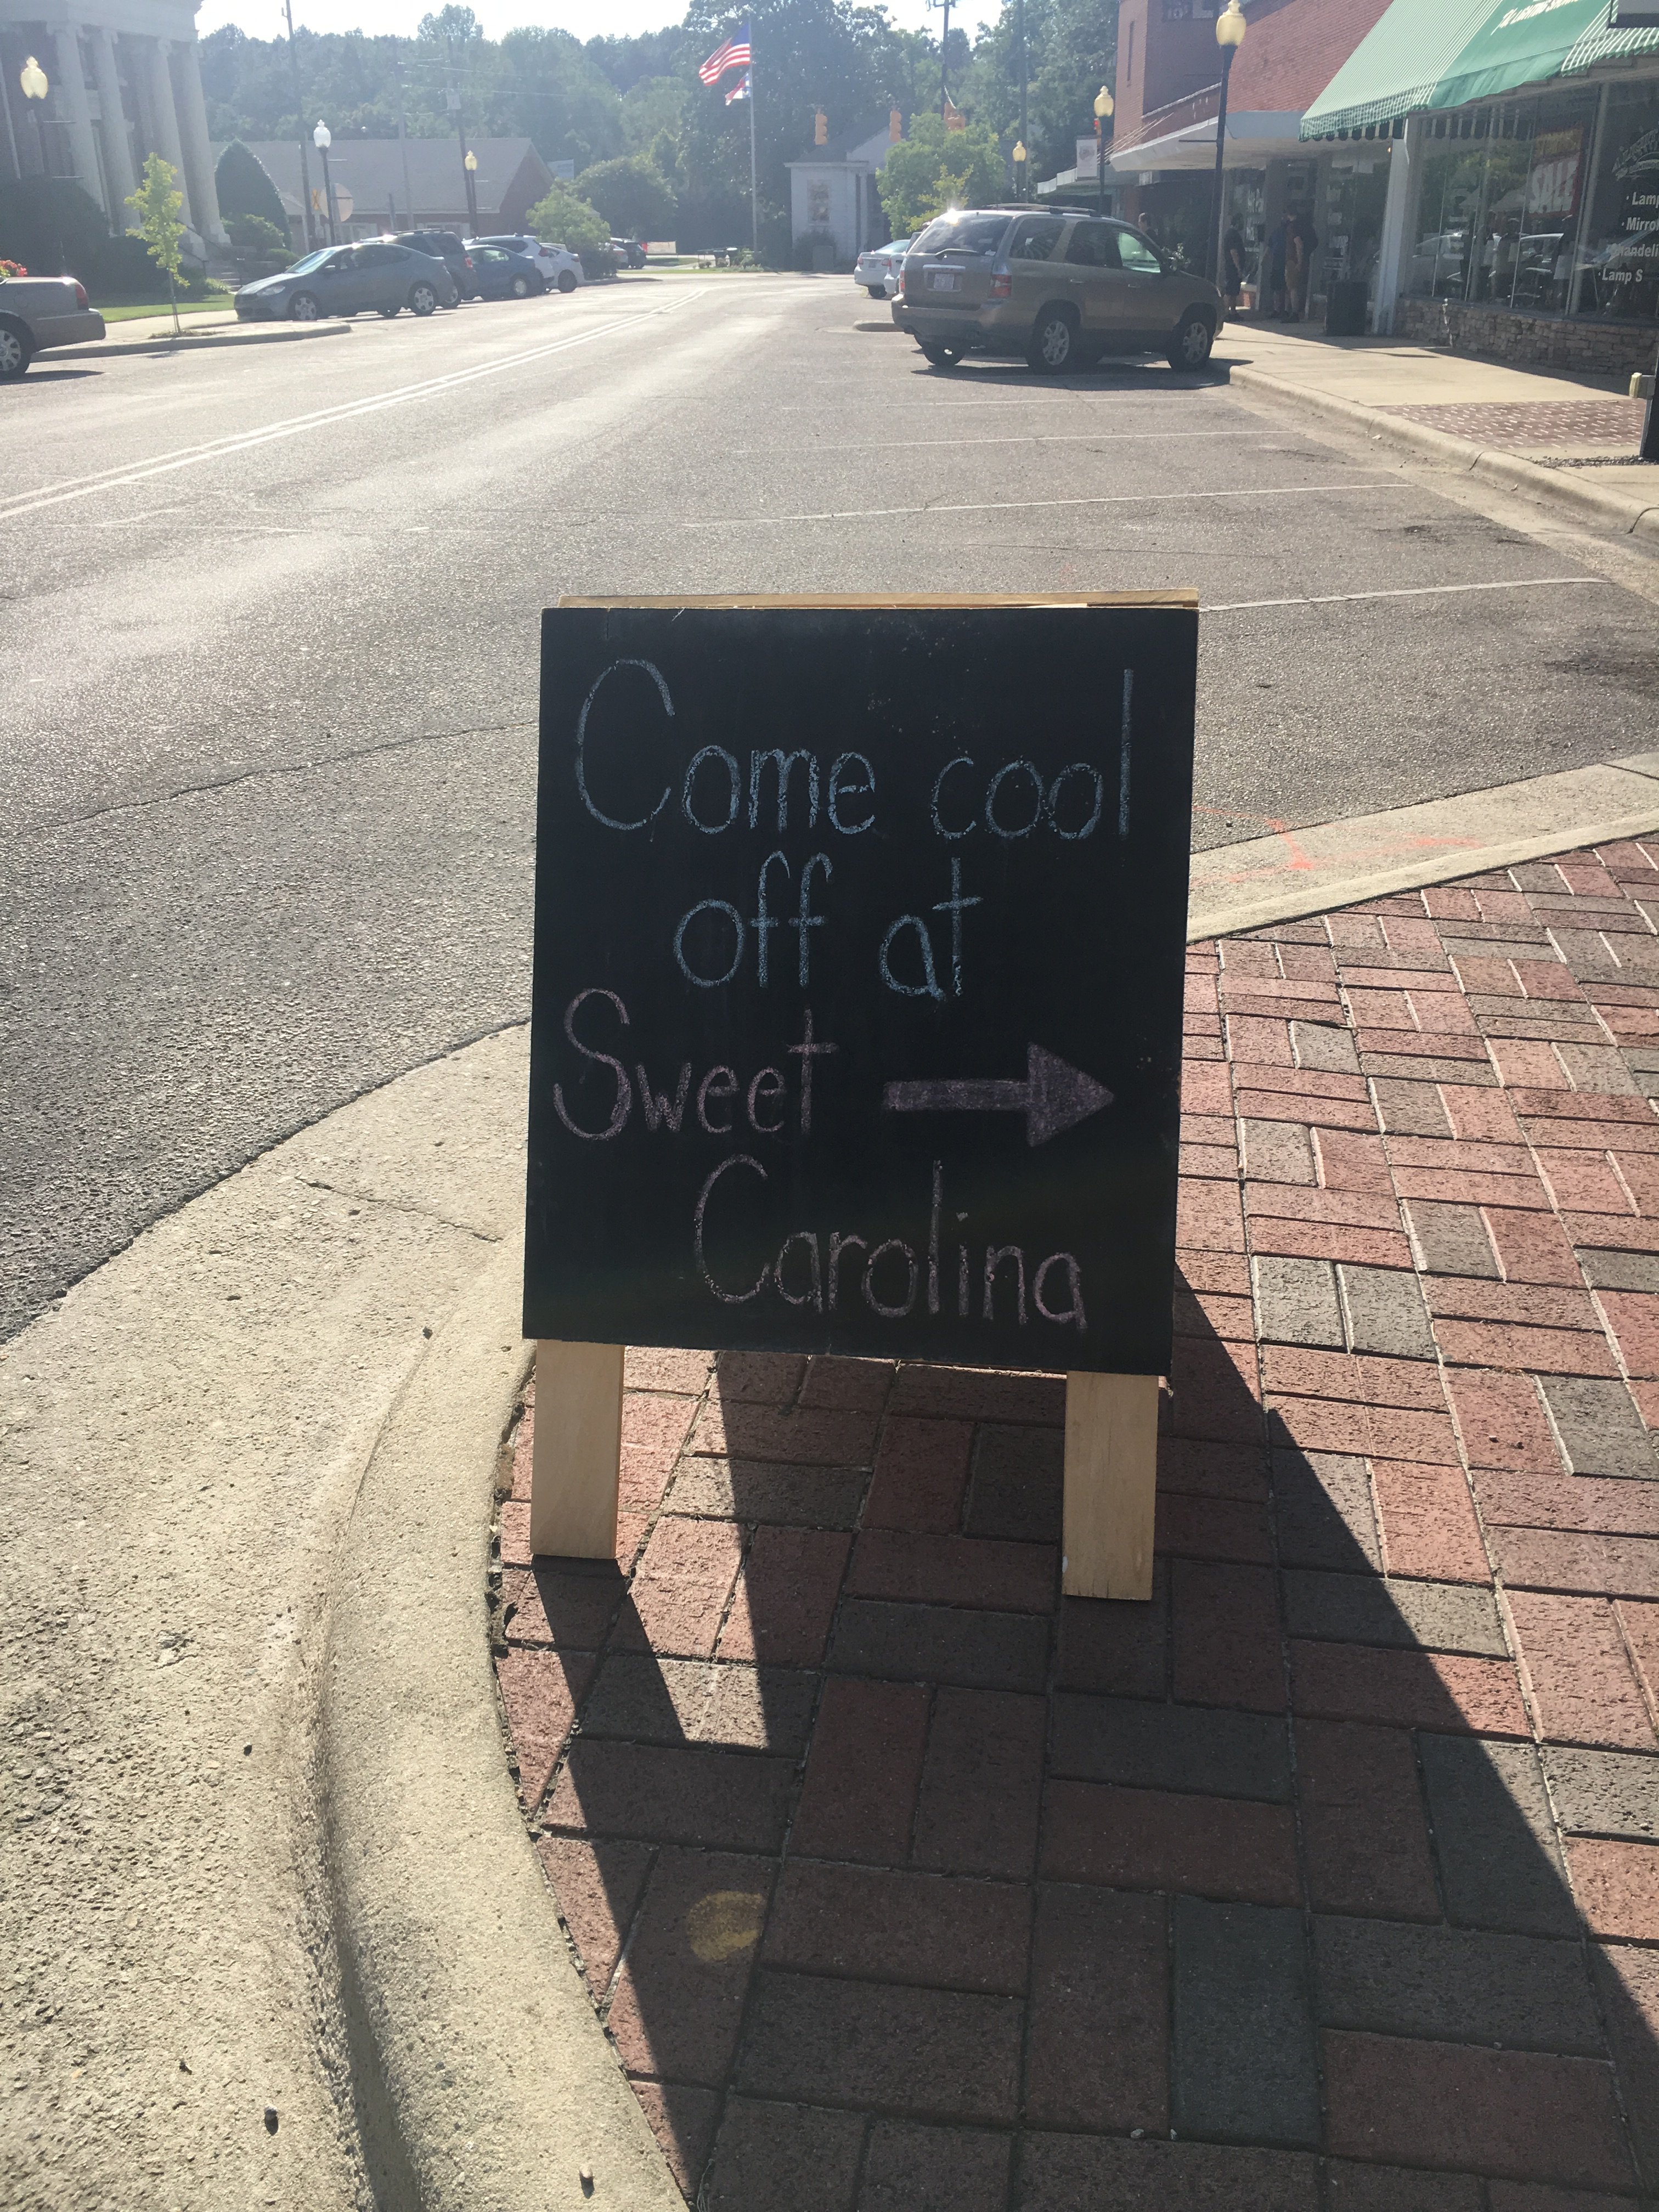 Come cool
off at
Sweet
Carolina
SALE
· Lamp
· Mirro
handeli
· Lamp S